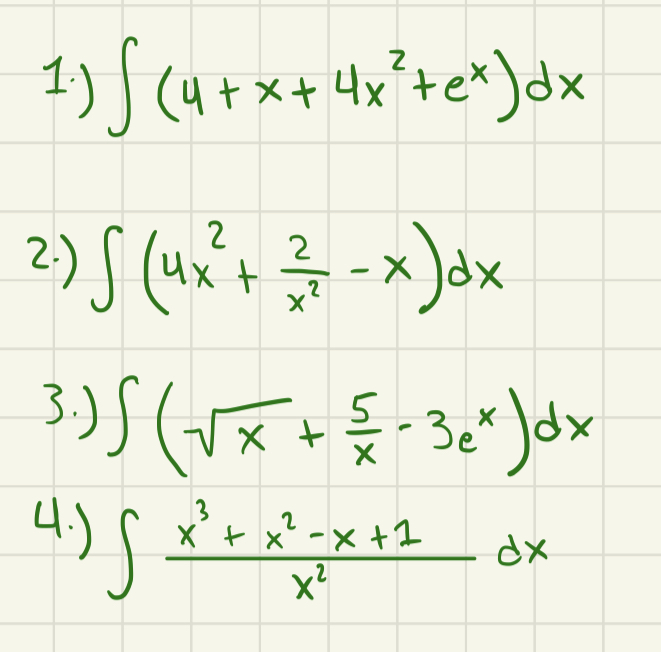 1.) ∫ (4 + x + 4x² + eˣ) dx
2.) ∫ (4x² + 2/x² - x) dx
3.) ∫ (√x + 5/x - 3eˣ) dx
4.) ∫ (x³ + x² - x + 1)/x² dx